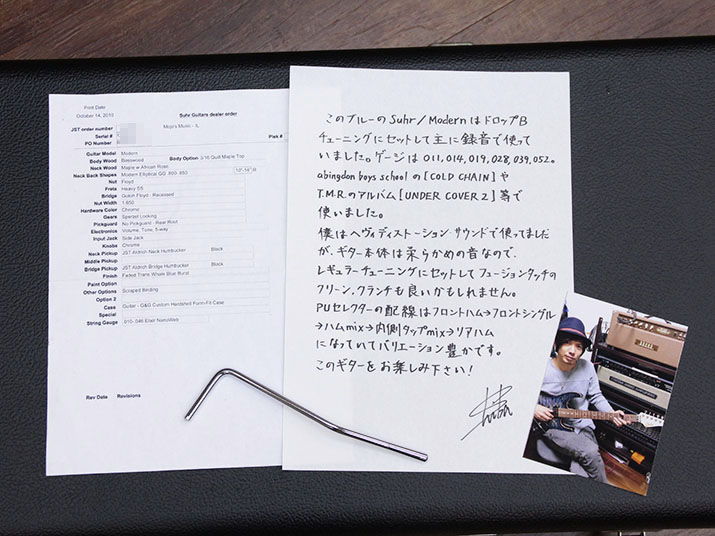 Print Date
October 14, 2010
Suhr Guitars dealer order
JST order number
Mojo's Music - IL
Serial #
PO Number
Plek #
Guitar Model Modern
Body Wood Basswood Body Option 3/16 Quilt Maple Top
Neck Wood Maple w African Rose
Neck Back Shapes Modern Elliptical GG .800-.850 10"-14"R
Nut Floyd
Frets Heavy SS
Bridge Gotoh Floyd - Recessed
Nut Width 1.650
Hardware Color Chrome
Gears Sperzel Locking
Pickguard No Pickguard - Rear Rout
Electronics Volume, Tone, 5-way
Input Jack Side Jack
Knobs Chrome
Neck Pickup JST Aldrich Neck Humbucker Black
Middle Pickup
Bridge Pickup JST Aldrich Bridge Humbucker Black
Finish Faded Trans Whale Blue Burst
Paint Option
Other Options Scraped Binding
Option 2
Case Guitar - G&G Custom Hardshell Form-Fit Case
Special
String Gauge .010-.046 Elixir NanoWeb
Rev Date Revisions
このブルーのSuhr/ModernはドロップB
チューニングにセットして主に録音で使って
いました。ゲージは011,014,019,028,039,052。
abingdon boys schoolの[COLD CHAIN]や
T.M.R.のアルバム[UNDER COVER 2]等で
使いました。
僕はヘヴィディストーション・サウンドで使ってましだ
が、ギター本体は柔らかめの音なので、
レギュラーチューニングにセットしてフュージョンタッチの
クリーン、クランチも良いかもしれません。
PUセレクターの配線はフロントハム→フロントシングル
→ハムmix→内側タップmix→リアハム
になっていてバリエーション豊かです。
このギターをお楽しみ下さい!